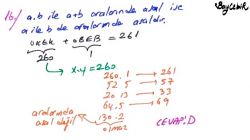 BayÇınar
16/ a.b ile a+b aralarında asal ise
a ile b de aralarında asaldır.
OKEK + OBEB = 261
260 1
x.y = 260
260.1 → 261
52.5 → 57
20.13 → 33
64.5 → 69
aralarında
asal değil
130.2
olmaz
CEVAP: D